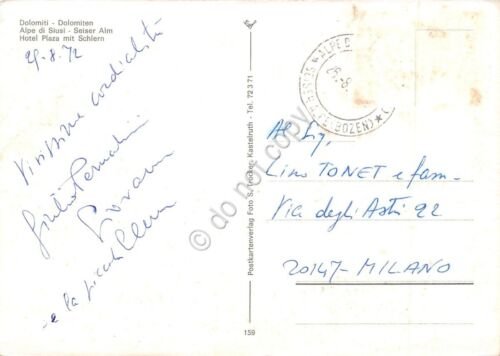 Dolomiti - Dolomiten
Alpe di Siusi - Seiser Alm
Hotel Plaza mit Schlern
29-8-72
Vivissime cordialità
Giulio
Giovanna
e la piccola
Postkartenverlag Foto S. Planger, Kastelruth - Tel. 72 3 71
159
ALPE D
(BOZEN)
Al Sig.
Lino TONET e fam.
Via degli Astri 22
20147 - MILANO
do not copy